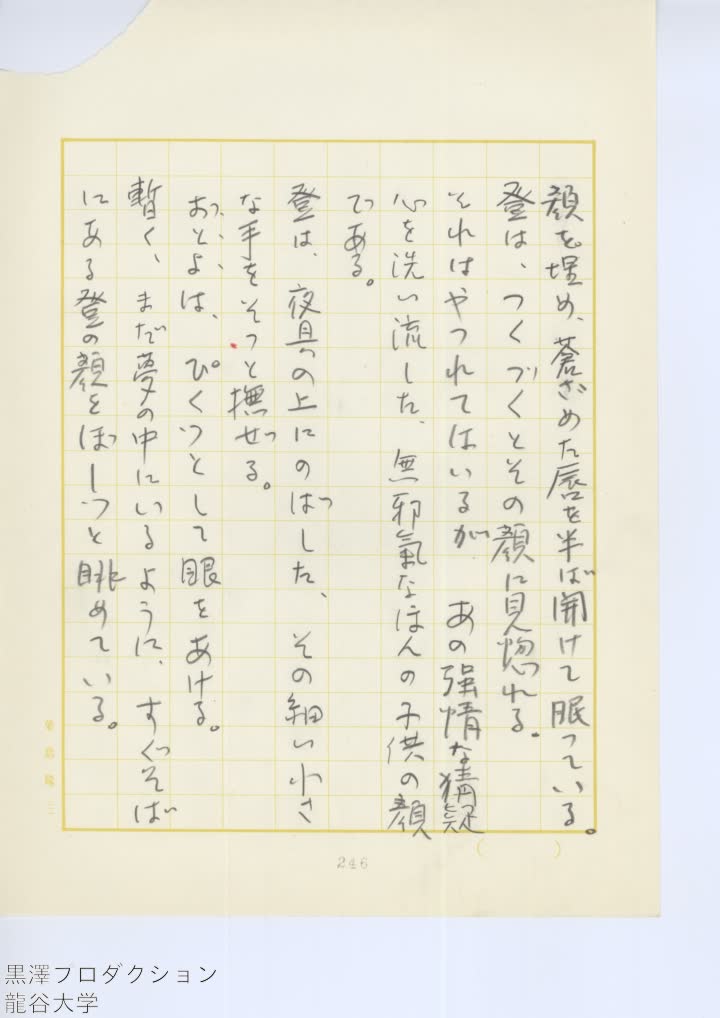 顔を埋め、蒼ざめた唇を半ば開けて眠っている。
登は、つくづくとその顔に見惚れる。
それはやつれてはいるが　あの強情な猜疑
心を洗い流した、無邪氣なほんの子供の顔
である。
登は、夜具の上にのばした、その細い小さ
な手をそっと撫ぜる。
おとよは、ぴくっとして眼をあける。
暫く、まだ夢の中にいるように、すぐそば
にある登の顔をぼーっと眺めている。
246
(　　)
黒澤プロダクション
龍谷大学